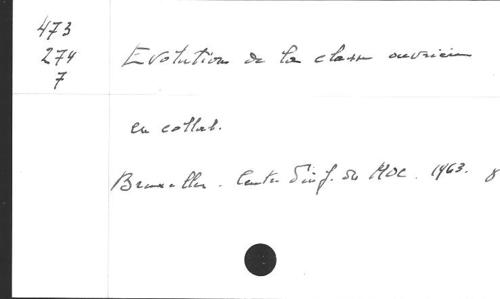 473
274 Evolution de la classe ouvrière
7
en collab.
Bruxelles. Centre d'inf. du MOC. 1963. 8